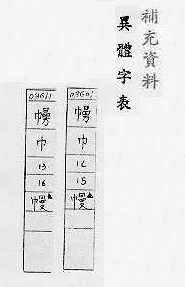 補充資料
異體字表
巾
12
15
幔
巾
13
16
幔